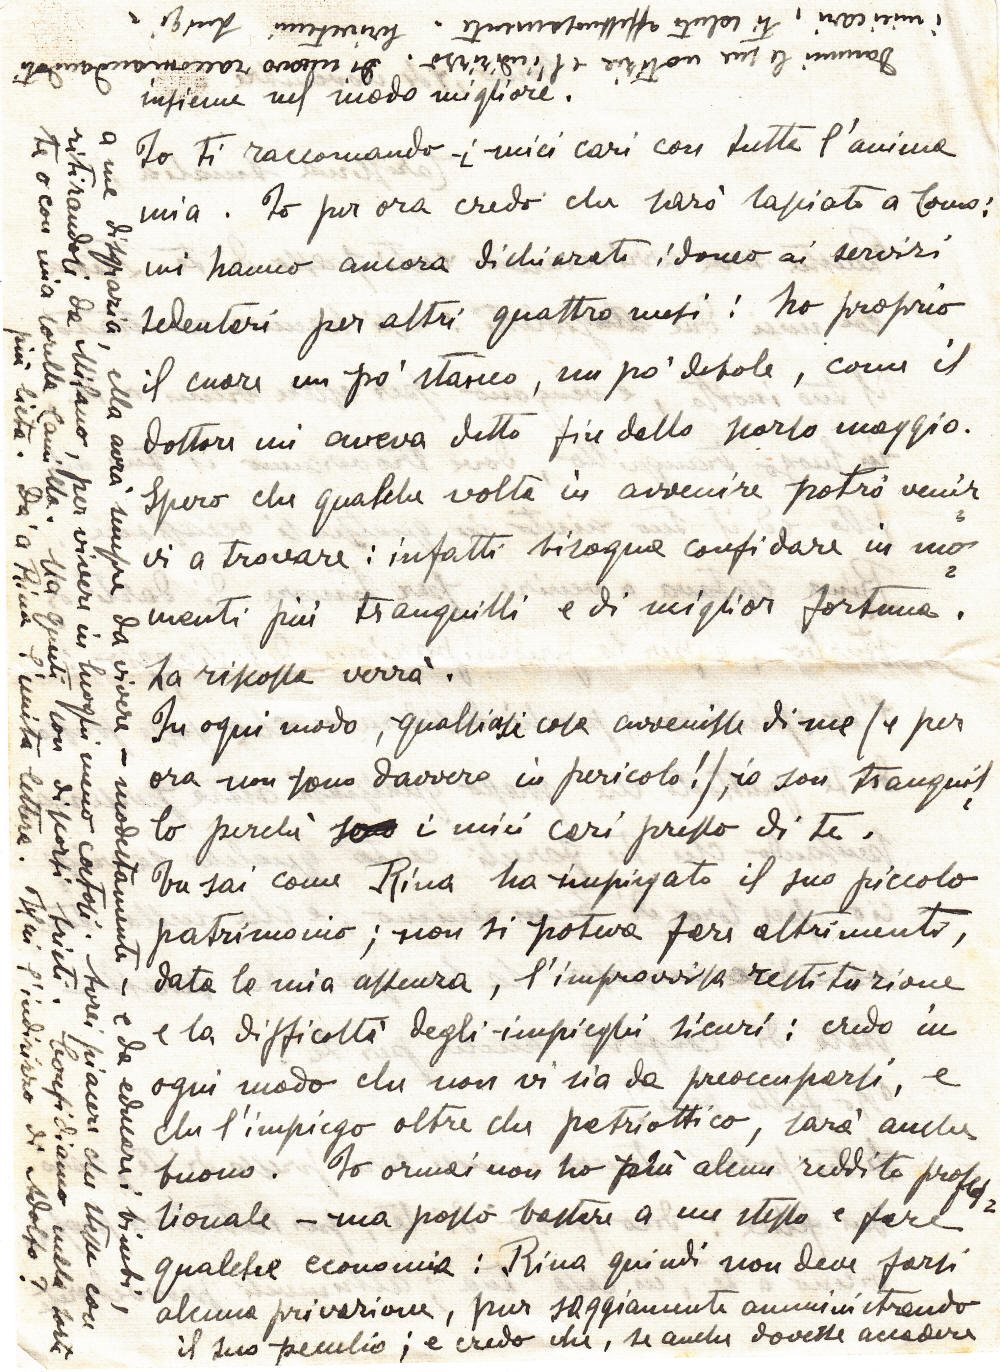 insieme nel modo migliore.
Io ti raccomando i miei cari con tutta l'anima
mia. Io per ora credo che sarò lasciato a Como:
mi hanno ancora dichiarato idoneo ai servizi
sedentari per altri quattro mesi: ho proprio
il cuore un po' stanco, un po' debole, come il
dottore mi aveva detto fin dallo scorso maggio.
Spero che qualche volta in avvenire potrò venir
vi a trovare: infatti bisogna confidare in mo
menti più tranquilli e di miglior fortuna.
La riscossa verrà.
In ogni modo, qualsiasi cosa avvenisse di me (e per
ora non sono davvero in pericolo!), io son tranquil
lo perchè so i miei cari presso di te.
Tu sai come Rina ha impiegato il suo piccolo
patrimonio; non si poteva fare altrimenti,
data la mia assenza, l'improvvisa restituzione
e la difficoltà degli impieghi sicuri: credo in
ogni modo che non vi sia da preoccuparsi, e
che l'impiego oltre che patriottico, sarà anche
buono. Io ormai non ho più alcun reddito profes
sionale – ma posso bastare a me stesso e fare
qualche economia: Rina quindi non deve farsi
alcuna privazione, pur saggiamente amministrando
il suo peculio; e credo che, se anche dovesse accadere
a me disgrazia, ella avrà sempre da vivere – modestamente – e da educare i bimbi,
ritirandosi da Milano, per vivere in luoghi meno costosi. Avrei piacere che stesse con
te o con mia sorella Camilla. Ma questi son discorsi tristi. Confidiamo nella sorte
più lieta. Dà a Rina l'unita lettera. l'indirizzo di Adolfo?
Dammi le tue notizie e l'indirizzo. Di nuovo raccomandandoti
i miei cari, ti saluto affettuosamente. Scrivetemi